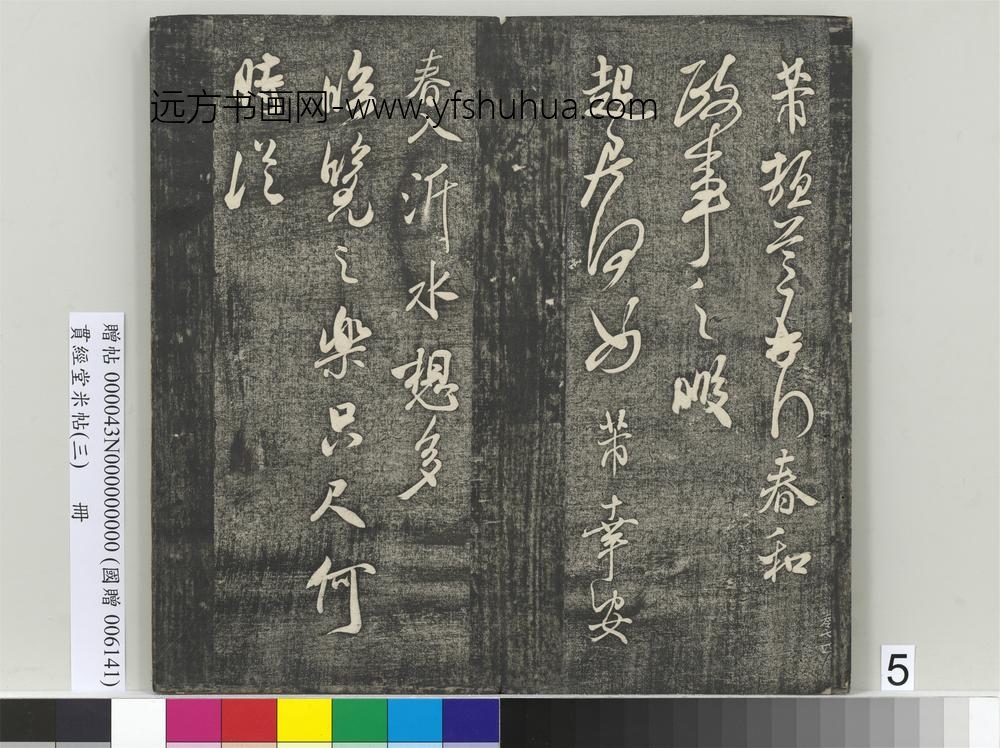 芾頓首春和
政事之暇
起居何如芾幸安
春人沂水想多
臨覽之樂只尺何
時從
远方书画网-www.yfshuhua.com
贈帖 000043N000000000 (國贈 006141)
貫經堂米帖(三) 冊
5